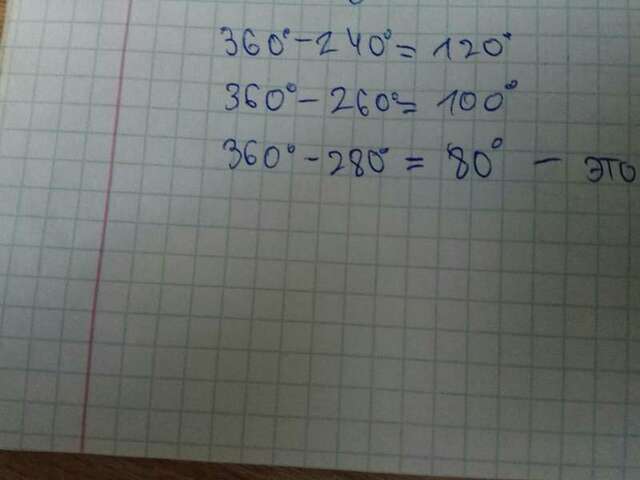 360° - 240° = 120°
360° - 260° = 100°
360° - 280° = 80° - это